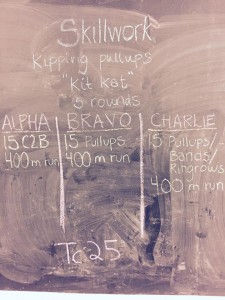 Skillwork
Kipping pullups
"Kit Kat"
5 rounds
ALPHA
15 C2B
400m run
BRAVO
15 Pullups
400m run
CHARLIE
15 Pullups/
Bands/
Ringrows
400 m run
TC 25